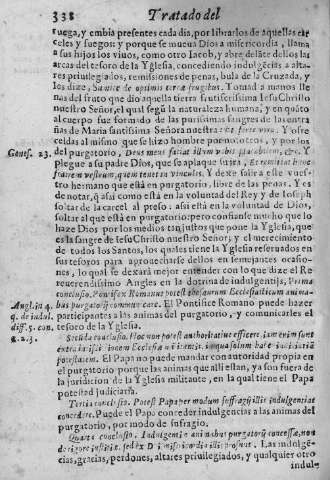 338 Tratado del
ruega, y embia presentes cada dia, por librarlos de aquellas car
celes y fuegos: y porque se mueva Dios a misericordia, llama
a sus hijos los vivos, como otro Iacob, y abre delãte dellos las
arcas del tesoro de la Yglesia, concediendo indulgẽcias a alta-
res priuilegiados, remissiones de penas, bula de la Cruzada, y
los dize, Sumite de optimis terræ frugibus. Tomad a manos lle
nas del fruto que dio aquella tierra frutiferissima IesuChristo
nuestro Señor, el qual segũ la naturaleza humana, y en quãto
al cuerpo fue formado de las purissimas sangres de las entra
ñas de Maria santissima Señora nuestra: Y ofre
celdas al mismo que se hizo hombre por nosotros, y por los
Genes. 23. del purgatorio, Deus meus faciat illum vobis placabilem, &c. Y
plegue a su padre Dios, que se aplaque su ira, Et remittat hunc
fratrem vestrum, quem tenet in vinculis. Y dexe salir a este vues-
tro hermano que está en purgatorio, libre de las penas. Y es
de notar, q̃ assi como está en la voluntad del Rey y de Ioseph
soltar de la carcel al preso: assi está en la voluntad de Dios,
soltar al que está en purgatorio: pero confianse mucho que lo
haze Dios por los medios tan justos que pone la Yglesia, que
es la sangre de IesuChristo nuestro Señor, y el merecimiento
de todos los Santos, los quales tiene la Yglesia reseruados en
sus tesoros para aprouecharse dellos en semejantes ocasio-
nes, lo qual se dexará mejor entender con lo que dize el Re
uerendissimo Angles en la dotrina de indulgentijs, Prima
conclusio, Pontifex Romanus potest thesaurum Ecclesiasticum anima-
Angl. in 4. bus purgatorij communicare. El Pontifice Romano puede hazer
q. de indul. participantes a las animas del purgatorio, y comunicarles el
diff. 5. con. tesoro de la Yglesia.
q. 2. 3. Secũda conclusio. Hoc non potest authoritatiue efficere, ium enim sunt
extra
potestatem. El Papa no puede mandar con autoridad propia en
el purgatorio, porque las animas que alli estan, ya son fuera de
la juridicion de la Yglesia militante, en la qual tiene el Papa
potestad judiciaria.
Tertia conclusio. Potest Papa per modum suffragij illis indulgentias
concedere. Puede el Papa conceder indulgencias a las animas del
purgatorio, por modo de sufragio.
Quarta conclusio. Indulgentiæ animabus purgatorij concessæ, non
de rigore iustitiæ, sed ex Dei misericordia illis prosunt. Las indulgẽ-
cias, gracias, perdones, altares priuilegiados, y qualquier otra
indul-